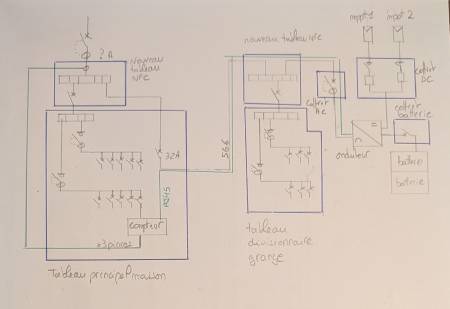 mppt 1
mppt 2
? A
Nouveau
tableau
NFC
nouveau tableau NFC
coffret
DC
coffret
AC
coffret
batterie
onduleur
batterie
batterie
32A
5G6
RJ45
compteur
+3 pinces
Tableau principal maison
tableau
divisionnaire
grange